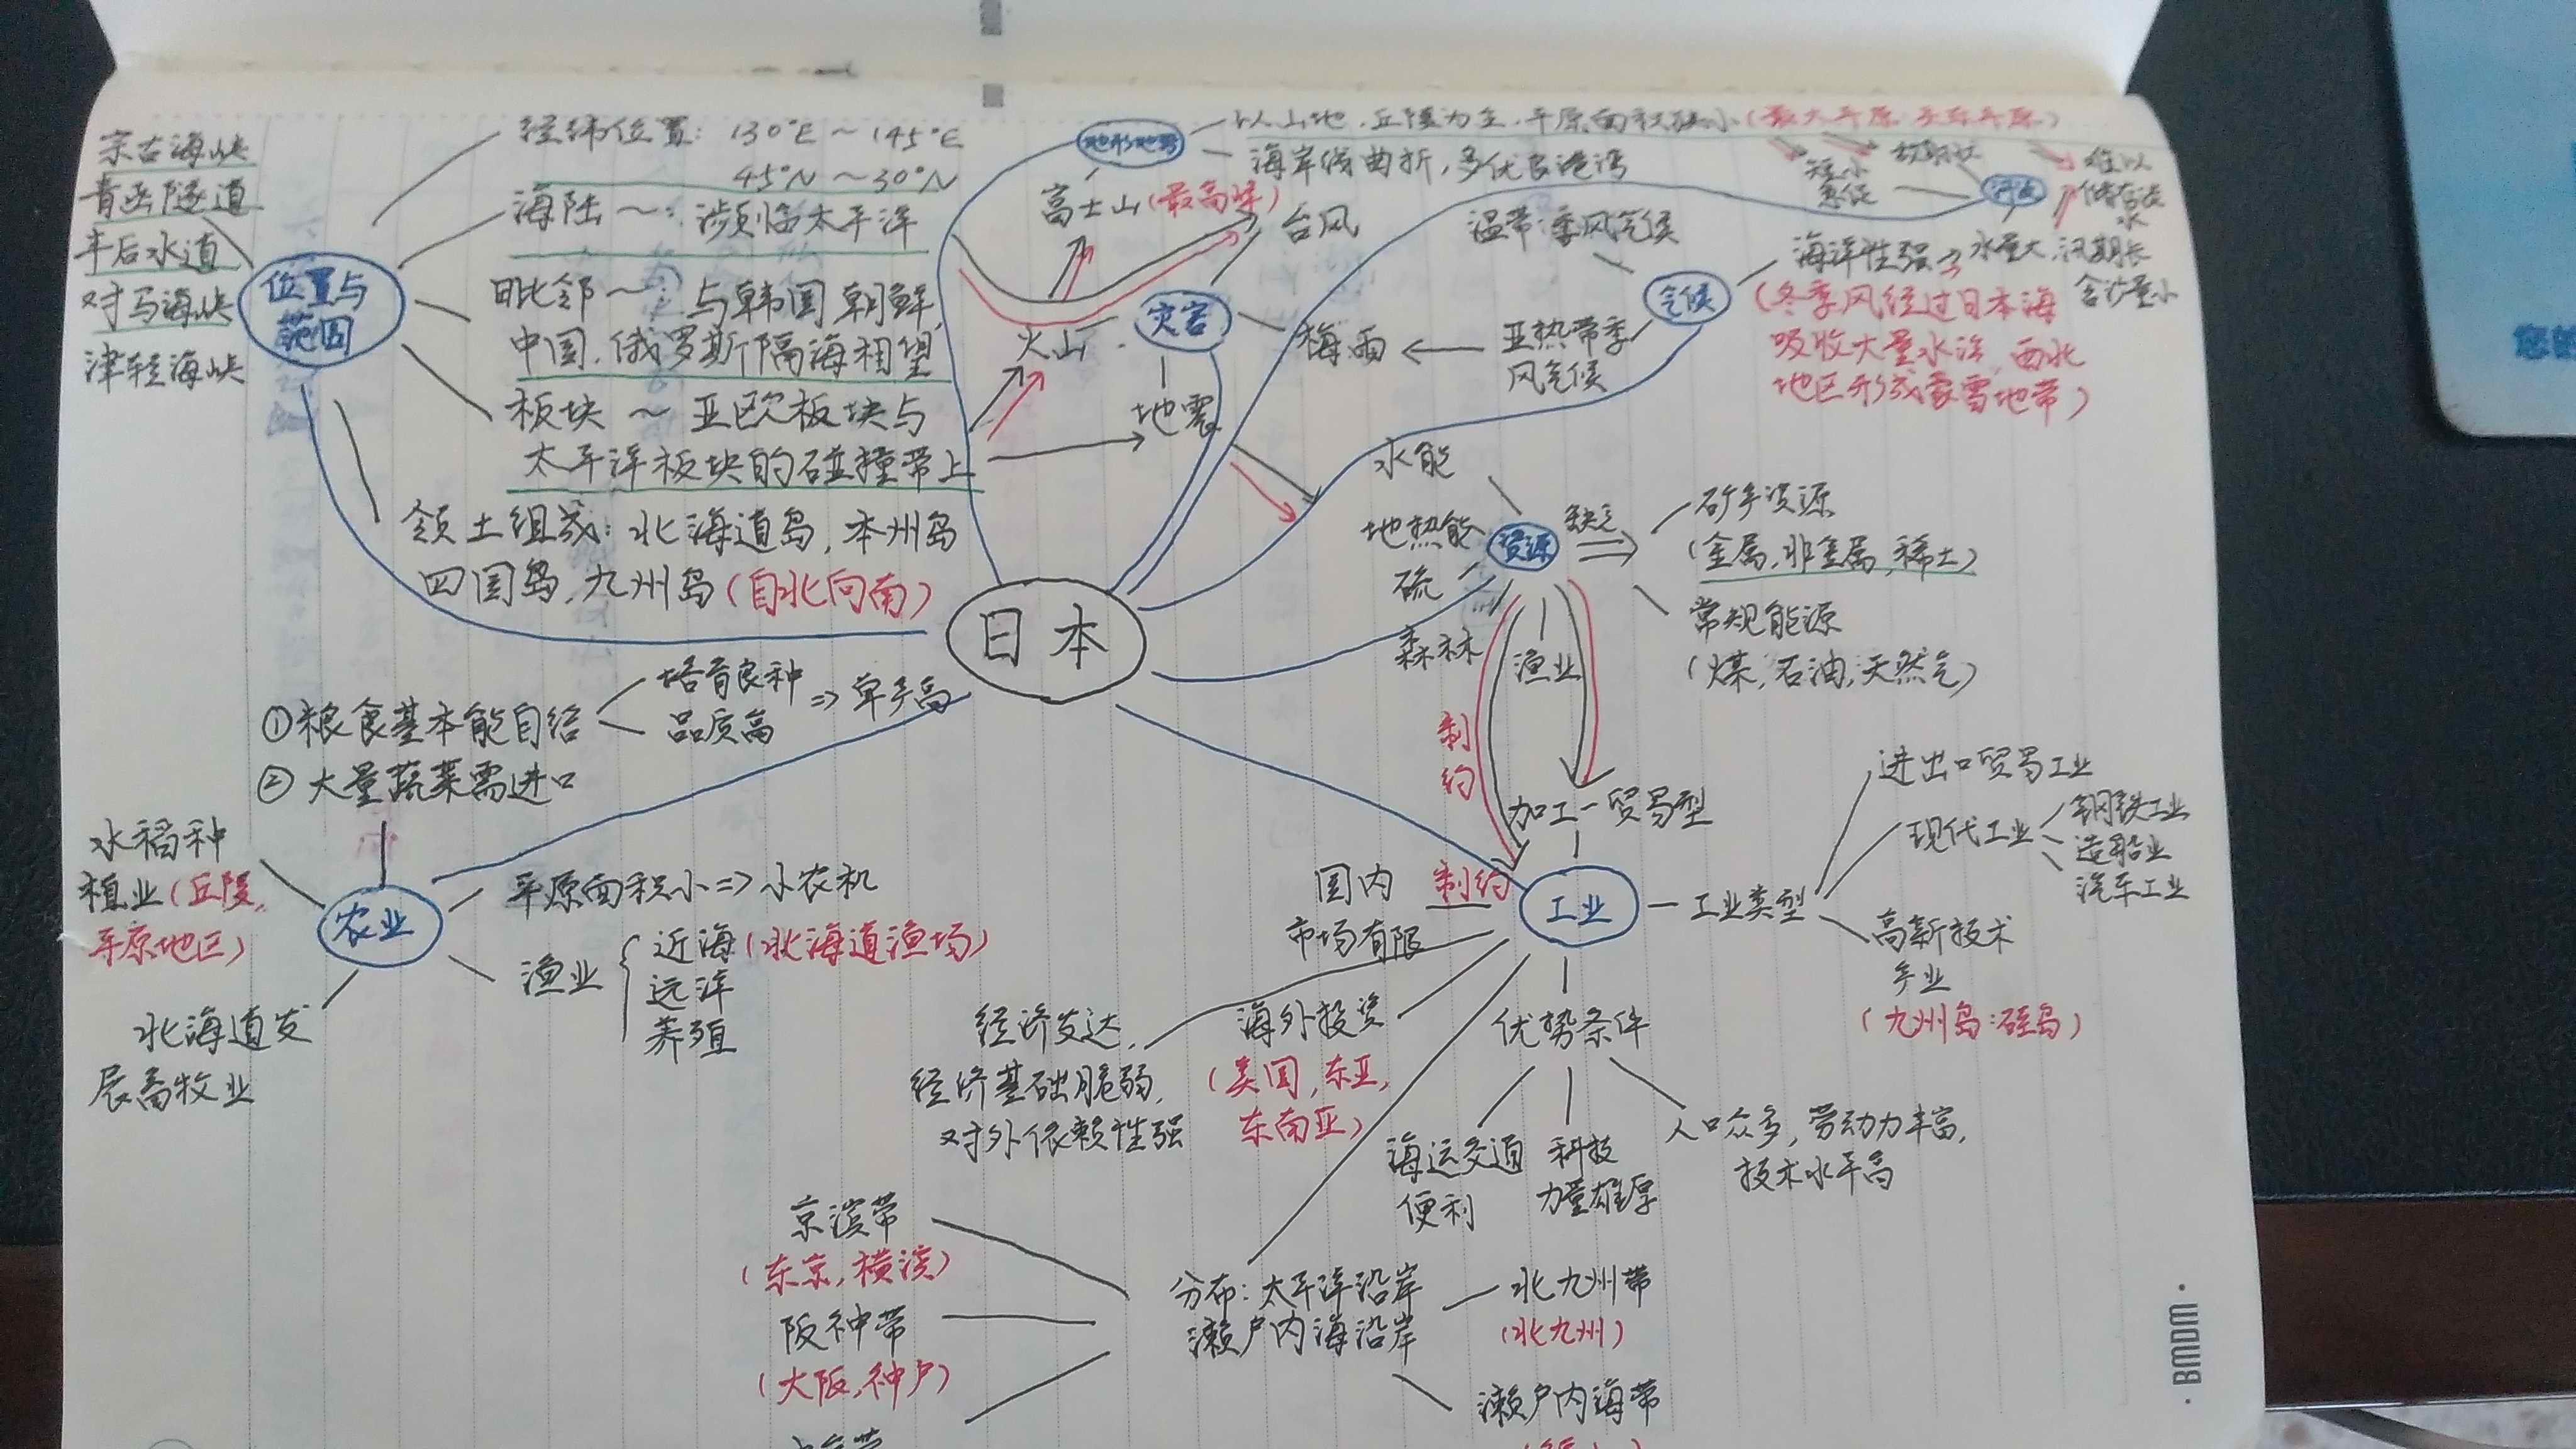 宗古海峡
青函隧道
丰后水道
对马海峡
津轻海峡
位置与
范围
经纬位置：130°E～145°E
45°N～30°N
海陆～：濒临太平洋
毗邻～：与韩国朝鲜，
中国，俄罗斯隔海相望
板块～亚欧板块与
太平洋板块的碰撞带上
领土组成：北海道岛，本州岛
四国岛，九州岛（自北向南）
地形地势
以山地、丘陵为主，平原面积狭小（最大平原
海岸线曲折，多优良港湾
富士山（最高峰）
台风
火山
灾害
梅雨
地震
短小
湍急
河流
难以
储存淡
水
温带季风气候
气候
亚热带季
风气候
海洋性强⇒水量大，汛期长
含沙量小
（冬季风经过日本海
吸收大量水汽，西北
地区形成豪雪地带）
日本
水能
地热能
硫
森林
渔业
资源
缺乏
矿产资源
（金属，非金属，稀土）
常规能源
（煤，石油，天然气）
制
约
加工—贸易型
①粮食基本能自给
②大量蔬菜需进口
培育良种
品质高
⇒单产高
水稻种
植业（丘陵，
平原地区）
农业
平原面积小⇒小农机
渔业
近海（北海道渔场）
远洋
养殖
北海道发
展畜牧业
国内
市场有限
制约
工业
工业类型
进出口贸易工业
现代工业
钢铁工业
造船业
汽车工业
高新技术
产业
（九州岛：硅岛）
经济发达，
经济基础脆弱，
对外依赖性强
海外投资
（美国，东亚，
东南亚）
优势条件
海运交通
便利
科技
力量雄厚
人口众多，劳动力丰富，
技术水平高
京滨带
（东京，横滨）
阪神带
（大阪，神户）
分布：太平洋沿岸
濑户内海沿岸
北九州带
（北九州）
濑户内海带
BMDM